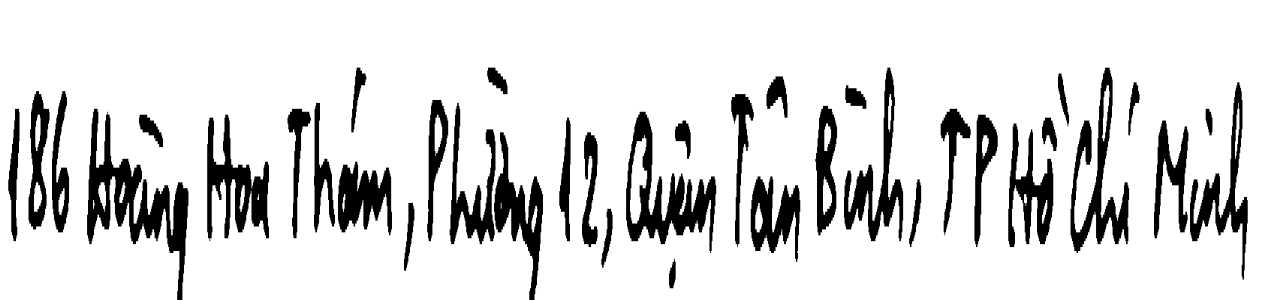 186 Hoàng Hoa Thám, Phường 12, Quận Tân Bình, TP Hồ Chí Minh